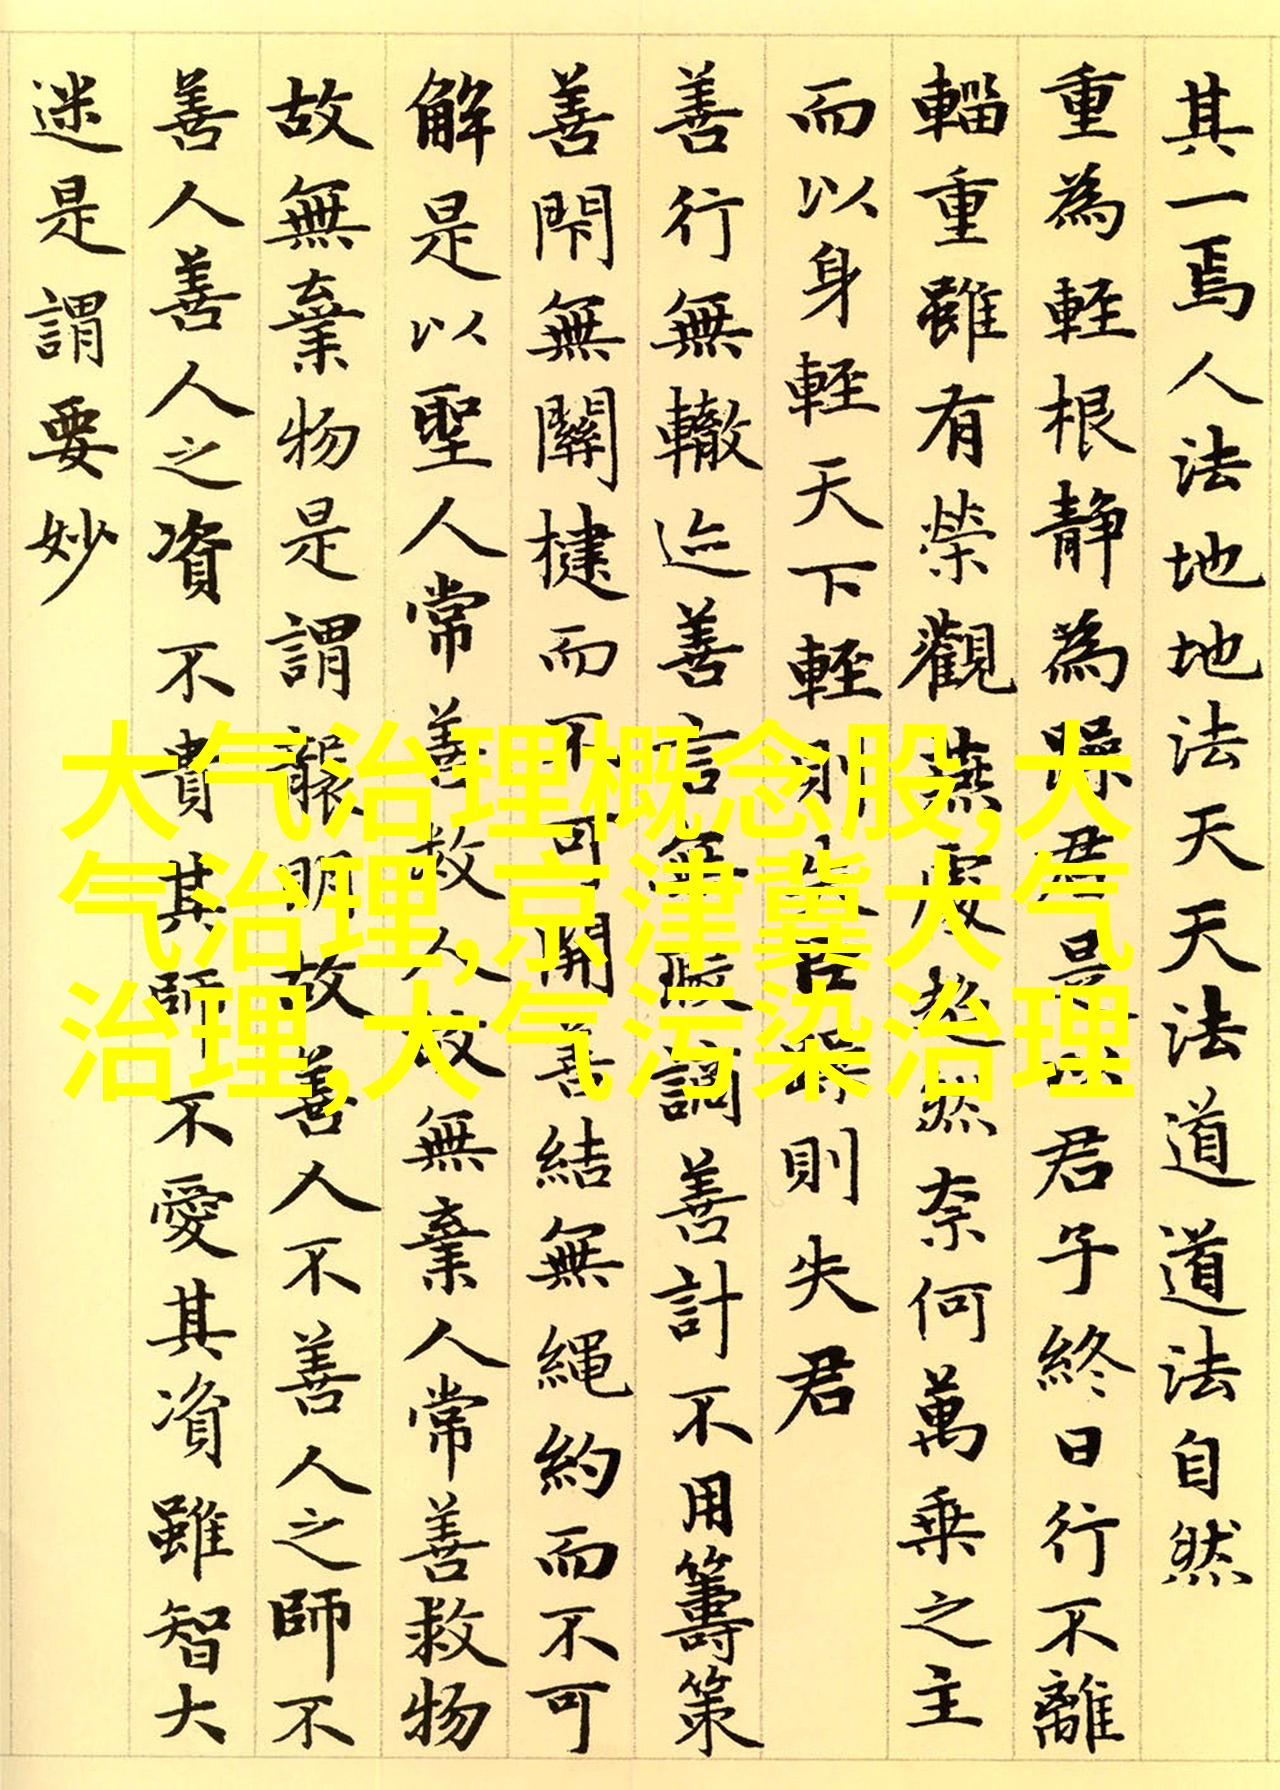 其一焉人法地地法天天法道道法自然
重為輕根静為躁君是以君子終日行不離
輜重雖有榮觀燕處超然奈何萬乗之主
而以身輕天下輕則失臣躁則失君
善行無轍迹善言無瑕謫善計不用籌策
善閇無關楗而不可開善結無繩約而不可
解是以聖人常善救人故無棄人常善救物
故無棄物是謂襲明故善人不善人之師不
善人善人之資不貴其師不愛其資雖智大
迷是謂要妙
大气治理概念股,大
气治理,京津冀大气
治理,大气污染治理